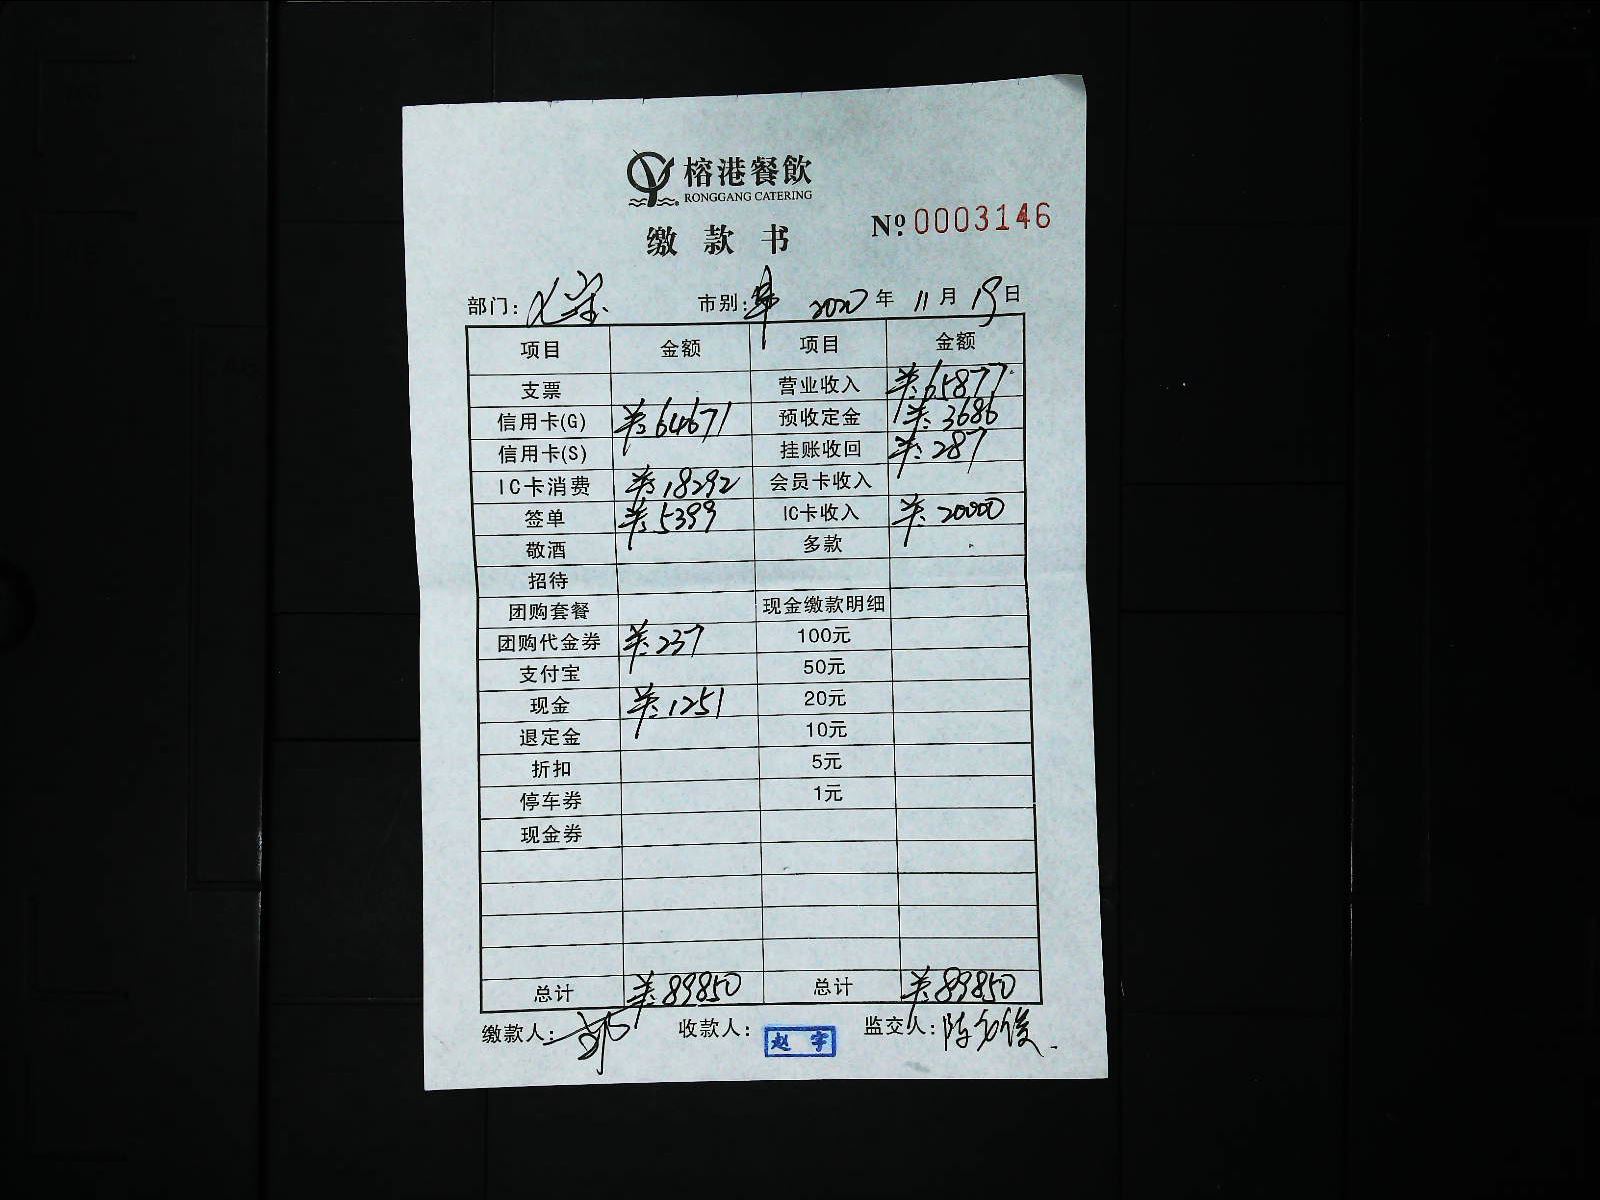 榕港餐飲
RONGGANG CATERING
缴款书 № 0003146
部门: 七宝 市别: 2020 年 11 月 19 日
项目 金额 项目 金额
支票 营业收入 ¥:65877
信用卡(G) ¥:64671 预收定金 ¥:3686
信用卡(S) 挂账收回 ¥:287
IC卡消费 ¥:18292 会员卡收入
签单 ¥:5399 IC卡收入 ¥:20000
敬酒 多款
招待
团购套餐 现金缴款明细
团购代金券 ¥:237 100元
支付宝 50元
现金 ¥:1251 20元
退定金 10元
折扣 5元
停车券 1元
现金券
总计 ¥:89850 总计 ¥:89850
缴款人: 收款人: 赵宇 监交人: 陈